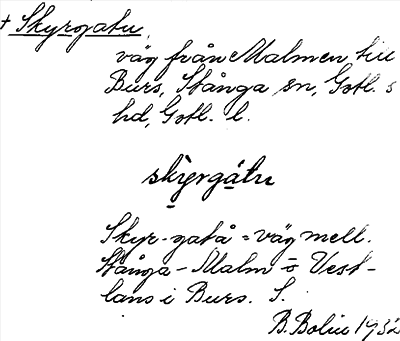 + Skyrgatu,
väg från Malmen till
Burs, Stånga sn, Gotl. s
hd, Gotl. l.
skyrgátu
Skyr-gatå = väg mell.
Stånga-Malm o Vest-
lans i Burs. S.
B. Bolin 1932